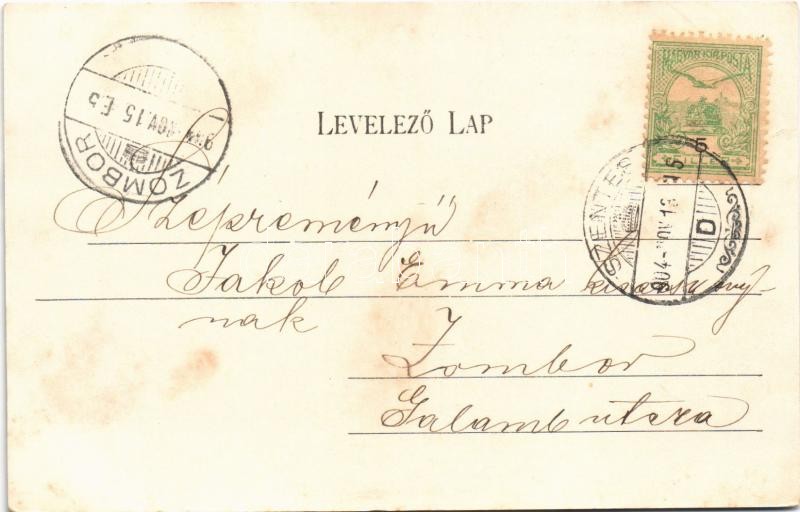 MAGYAR KIR. POSTA
LEVELEZŐ LAP
ZOMBOR
904 NOV. 15 E 5
SZENTES
904 NOV 1
D
5
Szépreményű
Jakob Emma kisasszony-
nak
Zombor
Galamb utcza